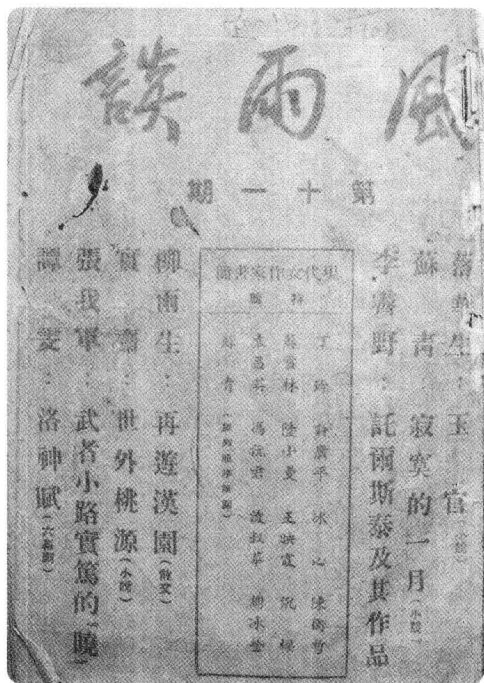 風雨談
第十一期
落華生：玉官（小說）
蘇青：寂寞的一月（小說）
李霽野：託爾斯泰及其作品
現代女作家書簡
特輯
丁玲 許廣平 冰心 陳衡哲
蘇雪林 陸小曼 王映霞 沉櫻
袁昌英 馮沅君 凌叔華 謝冰瑩
蘇青
柳雨生：再遊漢園（散文）
齋：世外桃源（小說）
張我軍：武者小路實篤的「曉」
譚雯：洛神賦（六幕劇）